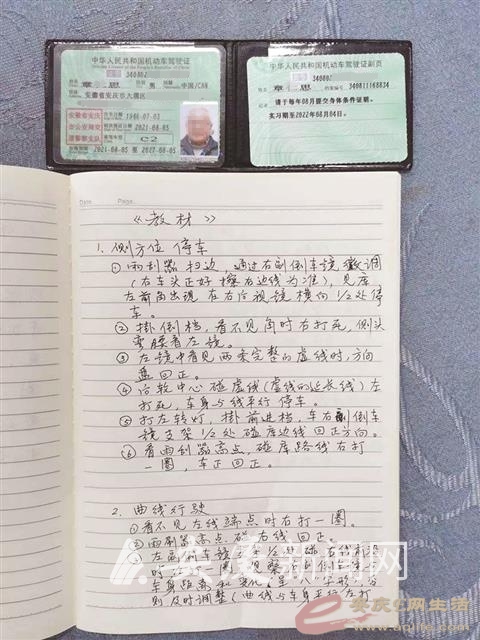 中华人民共和国机动车驾驶证
证号 340802
姓名 章仁思 性别 男 国籍 中国/CHN
安徽省安庆市大观区
安徽省安庆
市公安局交
通警察支队
出生日期 1946-07-03
初次领证日期 2021-08-05
准驾车型 C2
有效期限 2021-08-05 至 2027-08-05
中华人民共和国机动车驾驶证副页
证号 340802
姓名 章仁思 档案编号 340811168834
请于每年08月提交身体条件证明。
实习期至2022年08月04日。
Date Page
《教材》
1. 侧方位停车
① 雨刮器扫边，通过右副倒车镜微调
(右车头正好擦右边线为准)，见库
左前角出现在右后视镜横向1/2处停
车。
② 掛倒档，看不见角时右打死，侧头
弯腰看左镜。
③ 左镜中看见两条完整的虚线时，方向
盘回正。
④ 后轮中心碰虚线(虚线的延长线)左
打死，车身与线平行停车。
⑤ 打左转灯，掛前进档，车右副倒车
镜支架1/2处碰库边线回正方向。
⑥ 看雨刮器高点，碰库路线右打
一圈，车正回正。
2. 曲线行驶
① 看不见左线端点时右打一圈。
② 雨刷器高点碰右线回正。
则及时调整(曲线与车身平行左打
安庆新闻网
安庆e网生活